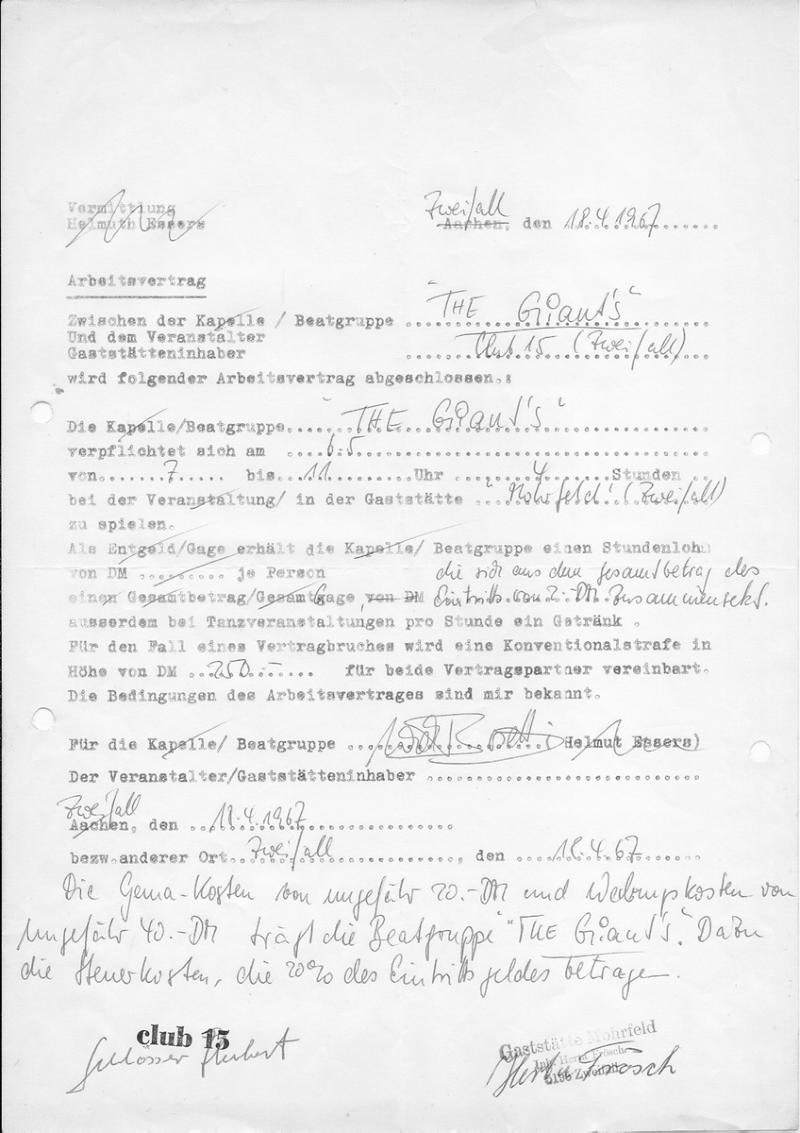 Vermittlung
Helmuth Essers
Zweifall
Aachen, den 18.4.1967
Arbeitsvertrag
Zwischen der Kapelle / Beatgruppe "THE Giant's"
Und dem Veranstalter
Gaststätteninhaber Club 15 (Zweifall)
wird folgender Arbeitsvertrag abgeschlossen.:
Die Kapelle/Beatgruppe "THE Giant's"
verpflichtet sich am 6.5.
von 7 bis 11 Uhr 4 Stunden
bei der Veranstaltung/ in der Gaststätte "Mohrfeld" (Zweifall)
zu spielen.
Als Entgeld/Gage erhält die Kapelle/ Beatgruppe einen Stundenlohn
von DM ......... je Person die sich aus dem Gesamtbetrag des
einen Gesamtbetrag/Gesamtgage, von DM Eintritts von 2.- DM zusammensetzt.
ausserdem bei Tanzveranstaltungen pro Stunde ein Getränk .
Für den Fall eines Vertragbruches wird eine Konventionalstrafe in
Höhe von DM 250.- für beide Vertragspartner vereinbart.
Die Bedingungen des Arbeitsvertrages sind mir bekannt.
Für die Kapelle/ Beatgruppe (Helmut Essers)
Der Veranstalter/Gaststätteninhaber
Zweifall
Aachen, den 18.4.1967
bezw.anderer Ort Zweifall, den 18.4.67
Die Gema-Kosten von ungefähr 20.-DM und Werbungskosten von
ungefähr 40.-DM trägt die Beatgruppe "THE Giant's". Dazu
die Steuerkosten, die 20% des Eintrittsgeldes betragen.
club 15
Gaststätte Mohrfeld
Schlösser Hubert
Inh. Herta Frösch
5196 Zweifall
Herta Frösch